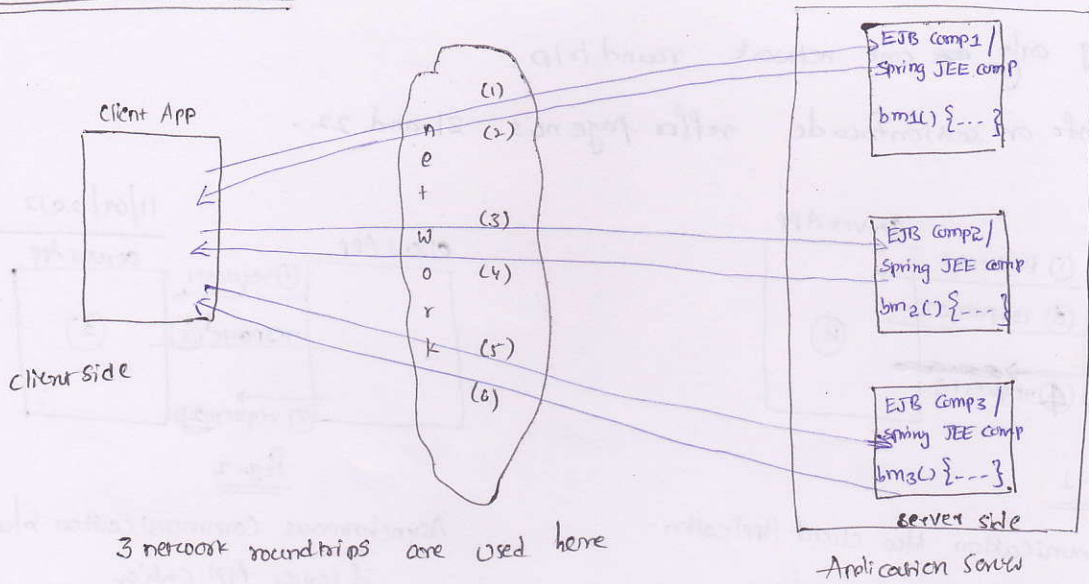 Client App
client side
n
e
t
w
o
r
k
(1)
(2)
(3)
(4)
(5)
(6)
EJB Comp1 /
Spring JEE comp
bm1() {--- }
EJB Comp2 /
Spring JEE comp
bm2() {--- }
EJB Comp3 /
Spring JEE comp
bm3() {---- }
server side
Application Server
3 network roundtrips are used here